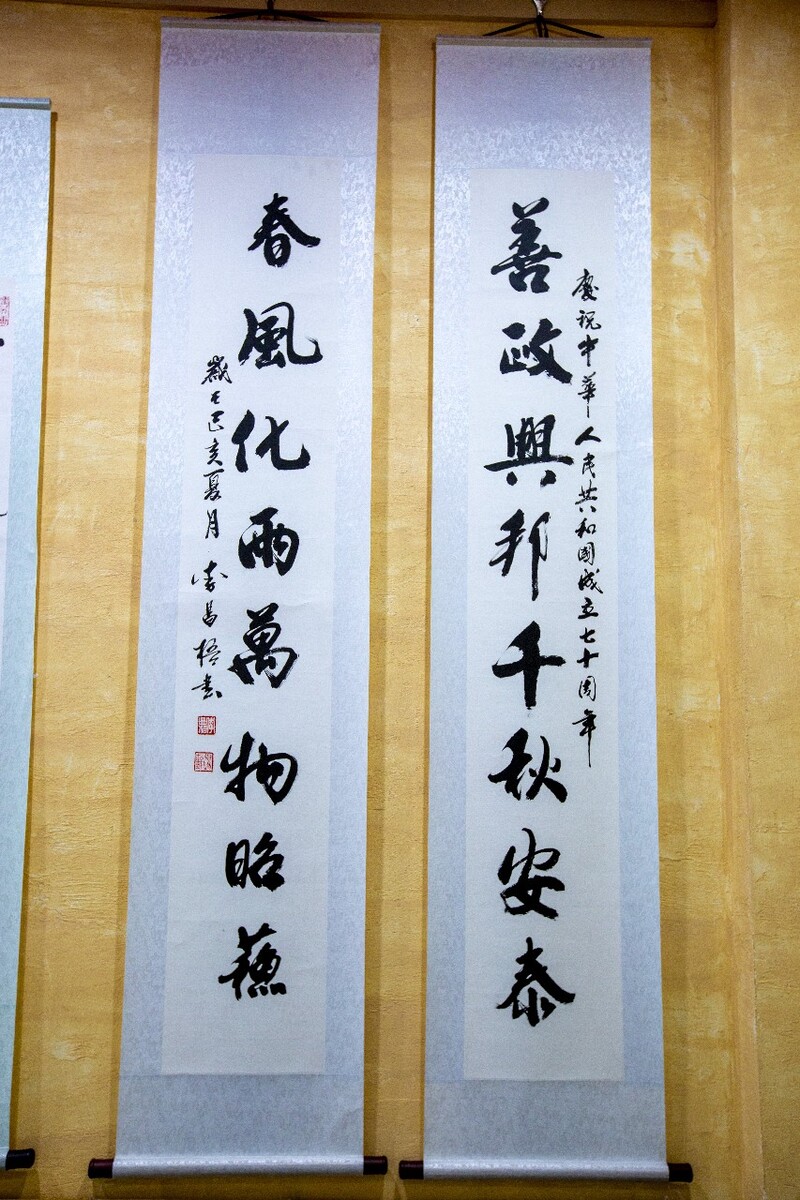 慶祝中華人民共和國成立七十周年
善政興邦千秋安泰
春風化雨萬物昭蘇
歲在己亥夏月
昌梧書